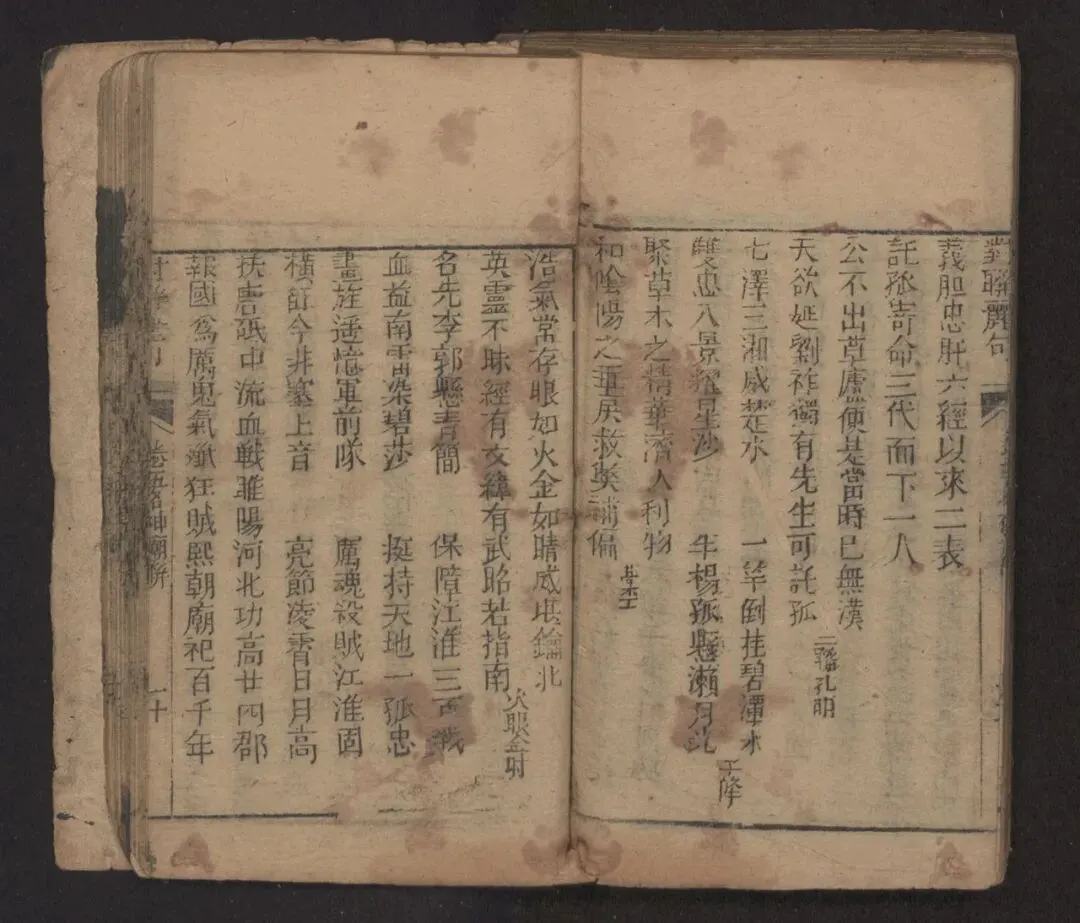 對聯麗句
義胆忠肝六經以來二表
託孤寄命三代而下一人
公不出草廬便是當時已無漢
天欲延劉祚獨有先生可託孤
二聯孔明
七澤三湘咸楚水 一竿倒挂碧潭水
雙忠八景耀星沙 半楊孤懸瀨月
聚草木之精華濟人利物
和陰陽之
浩氣常存眼如火金如睛威 鑰北
英靈不昧經有文緯有武昭若指南
火眼金
名先李郭懸青簡 保障江淮三百戰
血益南雷染碧莎 挺持天地一孤忠
畫旌遥憶軍前隊 厲魂殺賊江淮固
橫 今井塞上音 亮節凌霄日月高
扶唐砥中流血戰雎陽河北功高廿四郡
報國爲厲鬼氣 狂賊熙朝廟祀百千年
卷 神廟 二十